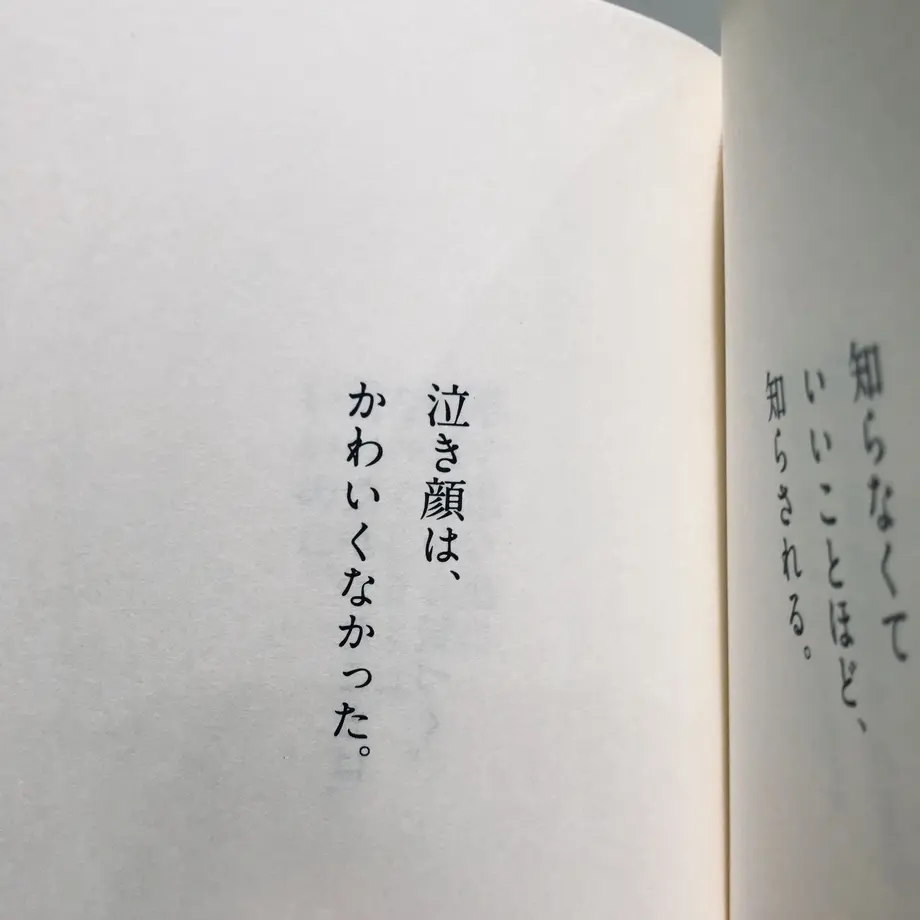 知らなくて
いいことほど、
知らされる。
泣き顔は、
かわいくなかった。